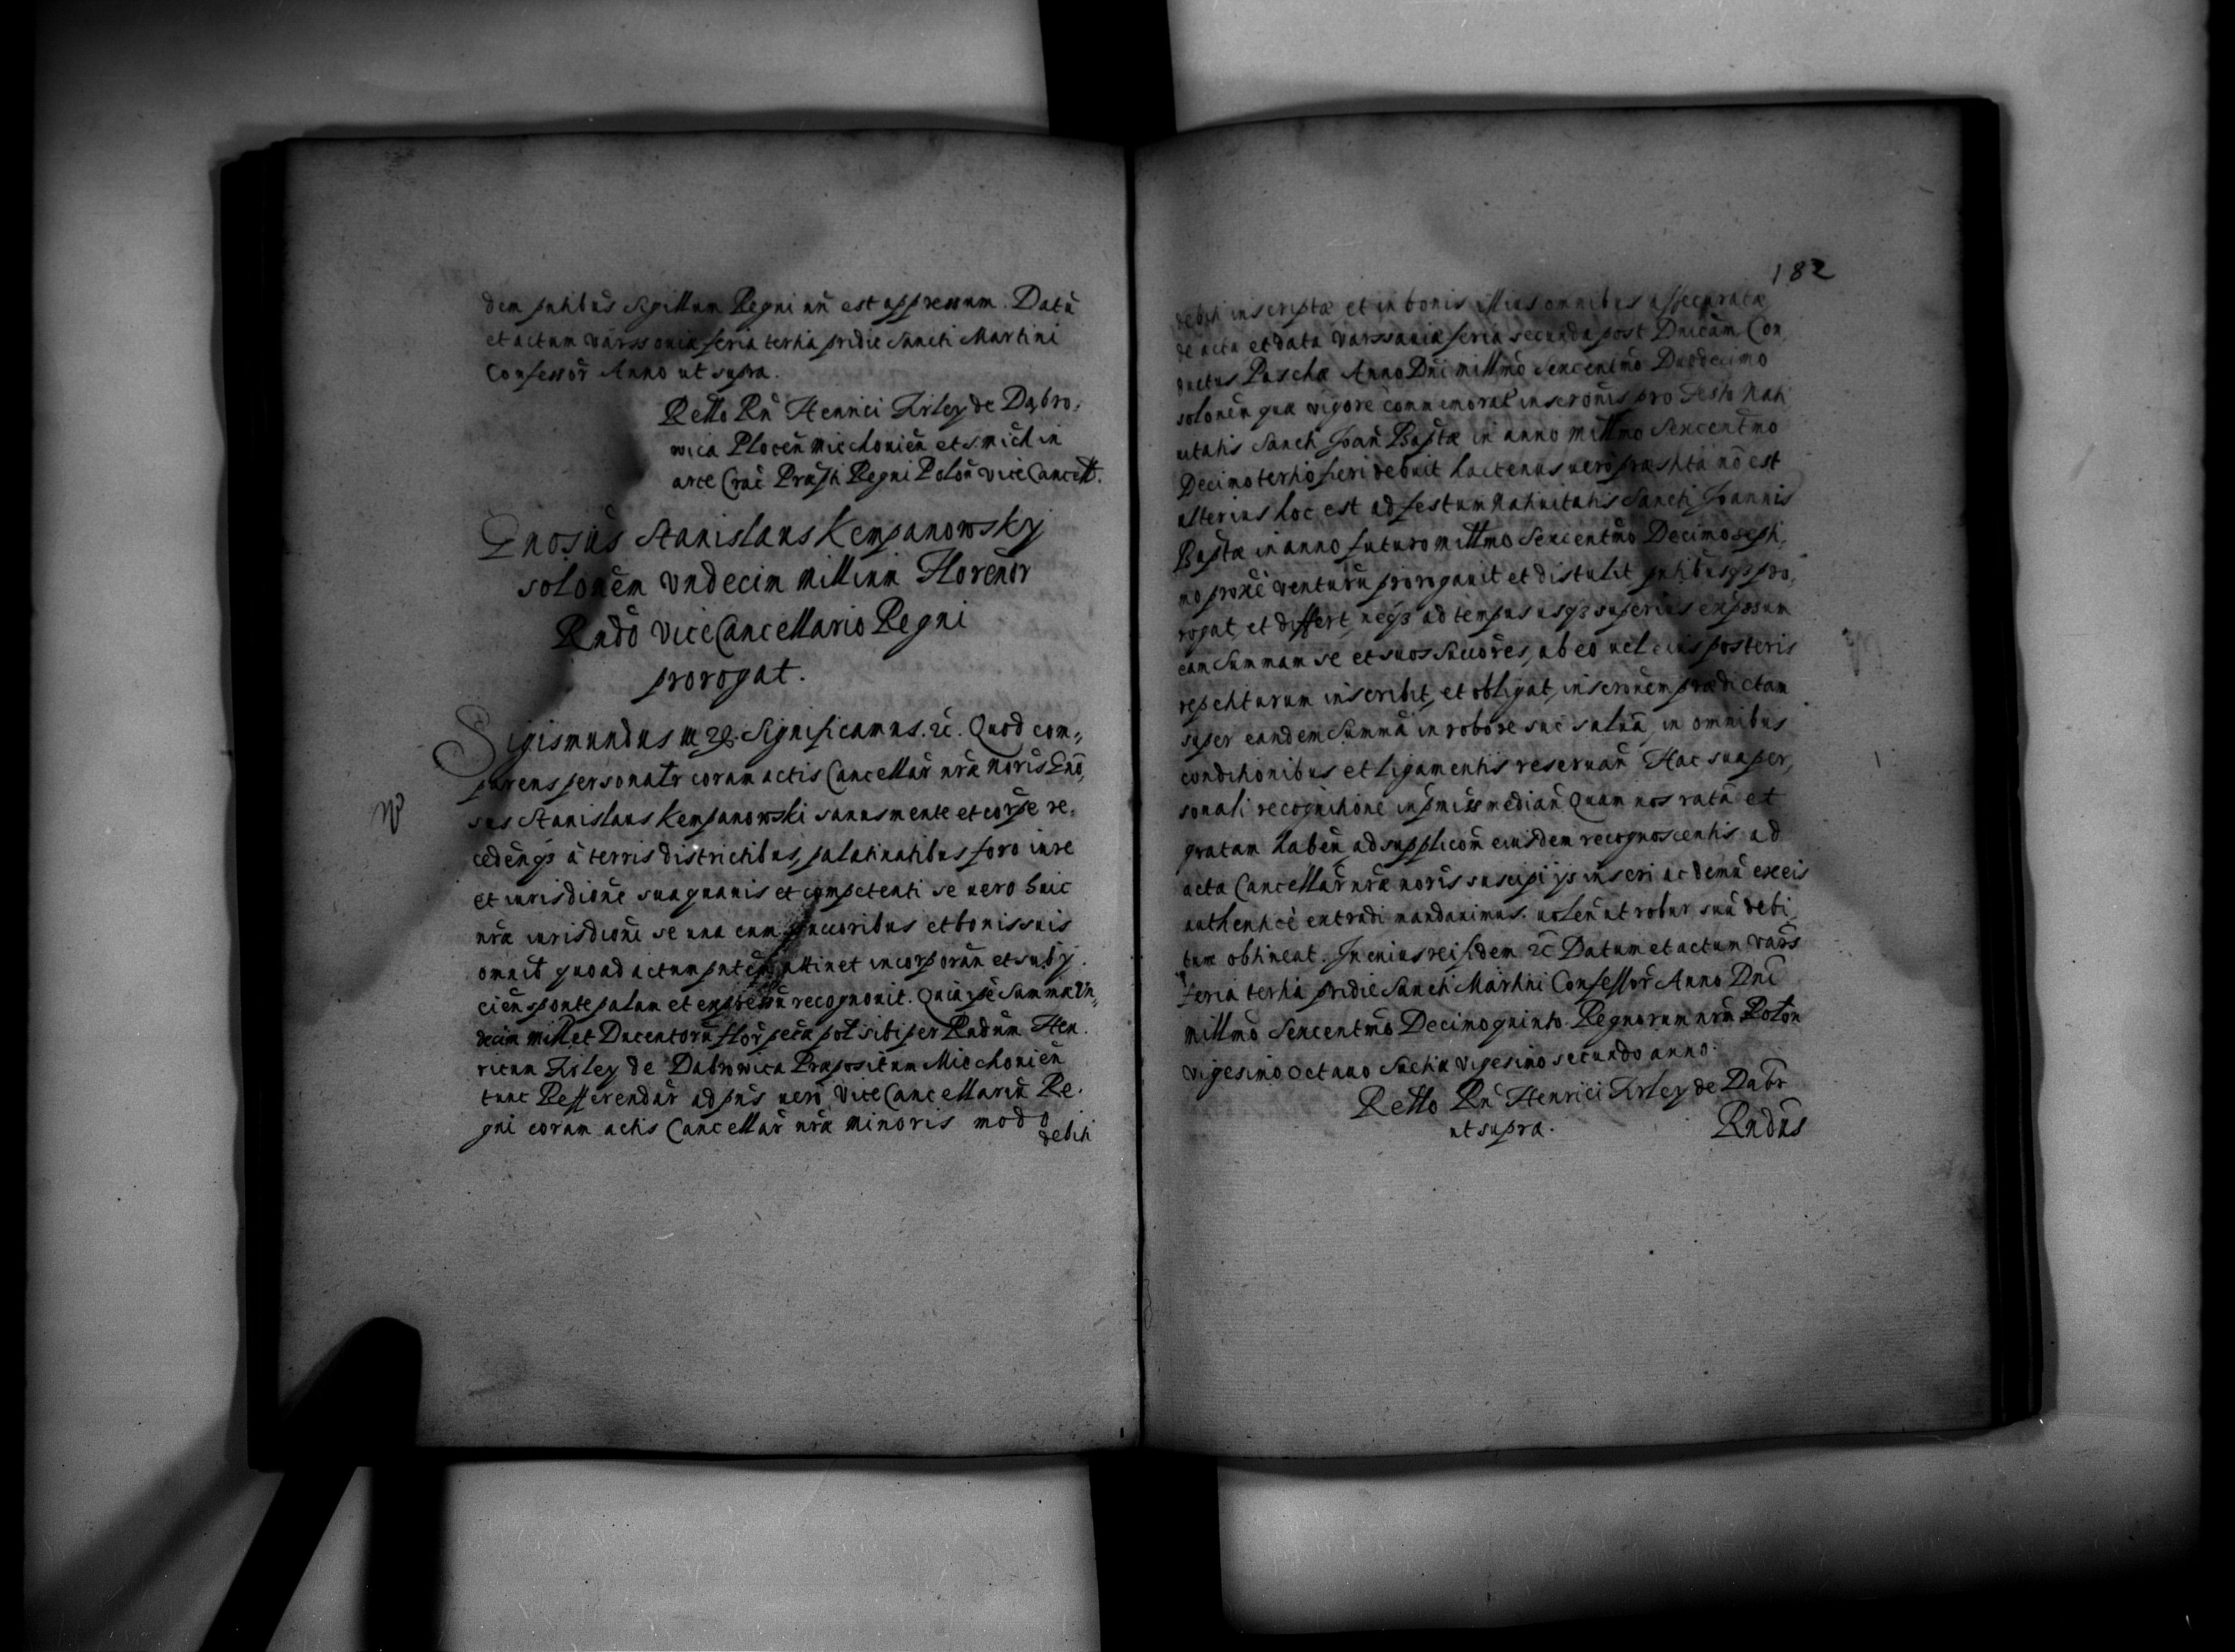 dem pntibus Sigillum Regni nri est appressum. Datū
et actum Varssoviæ feria tertia pridie Sancti Martini
Confessor̄ Anno ut supra.
Rello Rn̄ Henrici Firley de Dąbro,
wica Plocen̄ Miechovien̄ et S. Mich in
arce Crac̄ Præpti Regni Polon̄ Vice Cancell.
Gnosūs Stanislaus Kempanowsky
solonem Vndecim Millium Florenor̄
Rndō Vice Cancellario Regni
prorogat.
Sigismundus III &. Significamus. &c̄. Quod com„
parens personalr coram actis Cancellar̄ nrǣ noris Gnō,
sus Stanislaus Kempanowski sanus mente et corpe re,
cedēnqȝ à terris districtibus, palatinatibus foro iure
et iurisdione sua quavis et competenti se vero huic
nrǣ iurisdioni se una cum succoribus et bonis suis
omnib quoad actum pntem attinet incorporān et subij.
cien̄ sponte palam et expresse recognovit. Quia ipe summæ Vn„
decim mill et Ducentorū flor̄ pecæ pol sibi per Rndum Hen.
ricum Firley de Dabrowica Præpositum Miechovien̄
tunc Refferendar̄ ad pns vero Vice Cancellariū Re.
gni coram actis Cancellar̄ nrǣ minoris modo
debiti
182
debiti inscriptæ et in bonis illius omnibus assecuratæ
de acta et data Varssaviæ feria secunda post Dnicam Con
ductus Paschæ Anno Dni millmo Sexcentmo Duodecimo
solonēn quæ vigore commemorat inscronis pro Festo Nati
vitatis Sancti Joan̄ Baptæ in anno millmo Sexcentmo
Decimotertio fieri debuit hactenus vero præstita nō est
ulterius hoc est ad festum Nativitatis Sancti Joannis
Baptæ in anno futuro millmo Sexcentmo Decimosepti,
mo proxē venturū prorogavit et distulit pntibusqȝ pro,
rogat, et differt, neqȝ ad tempus usqȝ superius expssum
eam summam se et suos succores, ab eo vel eius posteris
repetiturum inscribit, et obligat, inscronem prædictam
super eandem summā in robore suo salvā, in omnibus
conditionibus et ligamentis reservan̄ Hac sua per,
sonali recognitione inpmiss median̄ Quam nos ratā et
gratam haben̄ ad supplicōm eiusdem recognoscentis ad
acta Cancellar̄ nrǣ noris suscipi ijs inseri ac demū ex eis
authenticè extradi mandavimus. volen̄ ut robur suū debi
tum obtineat. In cuius rei fidem &c̄ Datum et actum Vars
Feria tertia pridie Sancti Martini Confessor̄ Anno Dni
millmo Sexcentmo Decimoquinto. Regnorum nrū Polon
vigesimo octavo Sueciæ vigesimo secundo anno.
Rello Rn̄ Henrici Firley de Dabr
ut supra.
Rndūs